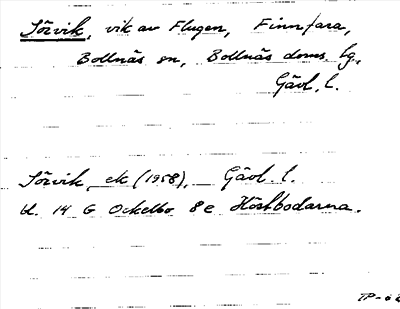 Sörvik, vik av Flugen, Finnfara,
Bollnäs sn, Bollnäs doms. tg.,
Gävl. l.
Sörvik, ek (1958), Gävl. l.
bl. 14 G Ockelbo 8 e Höstbodarna.